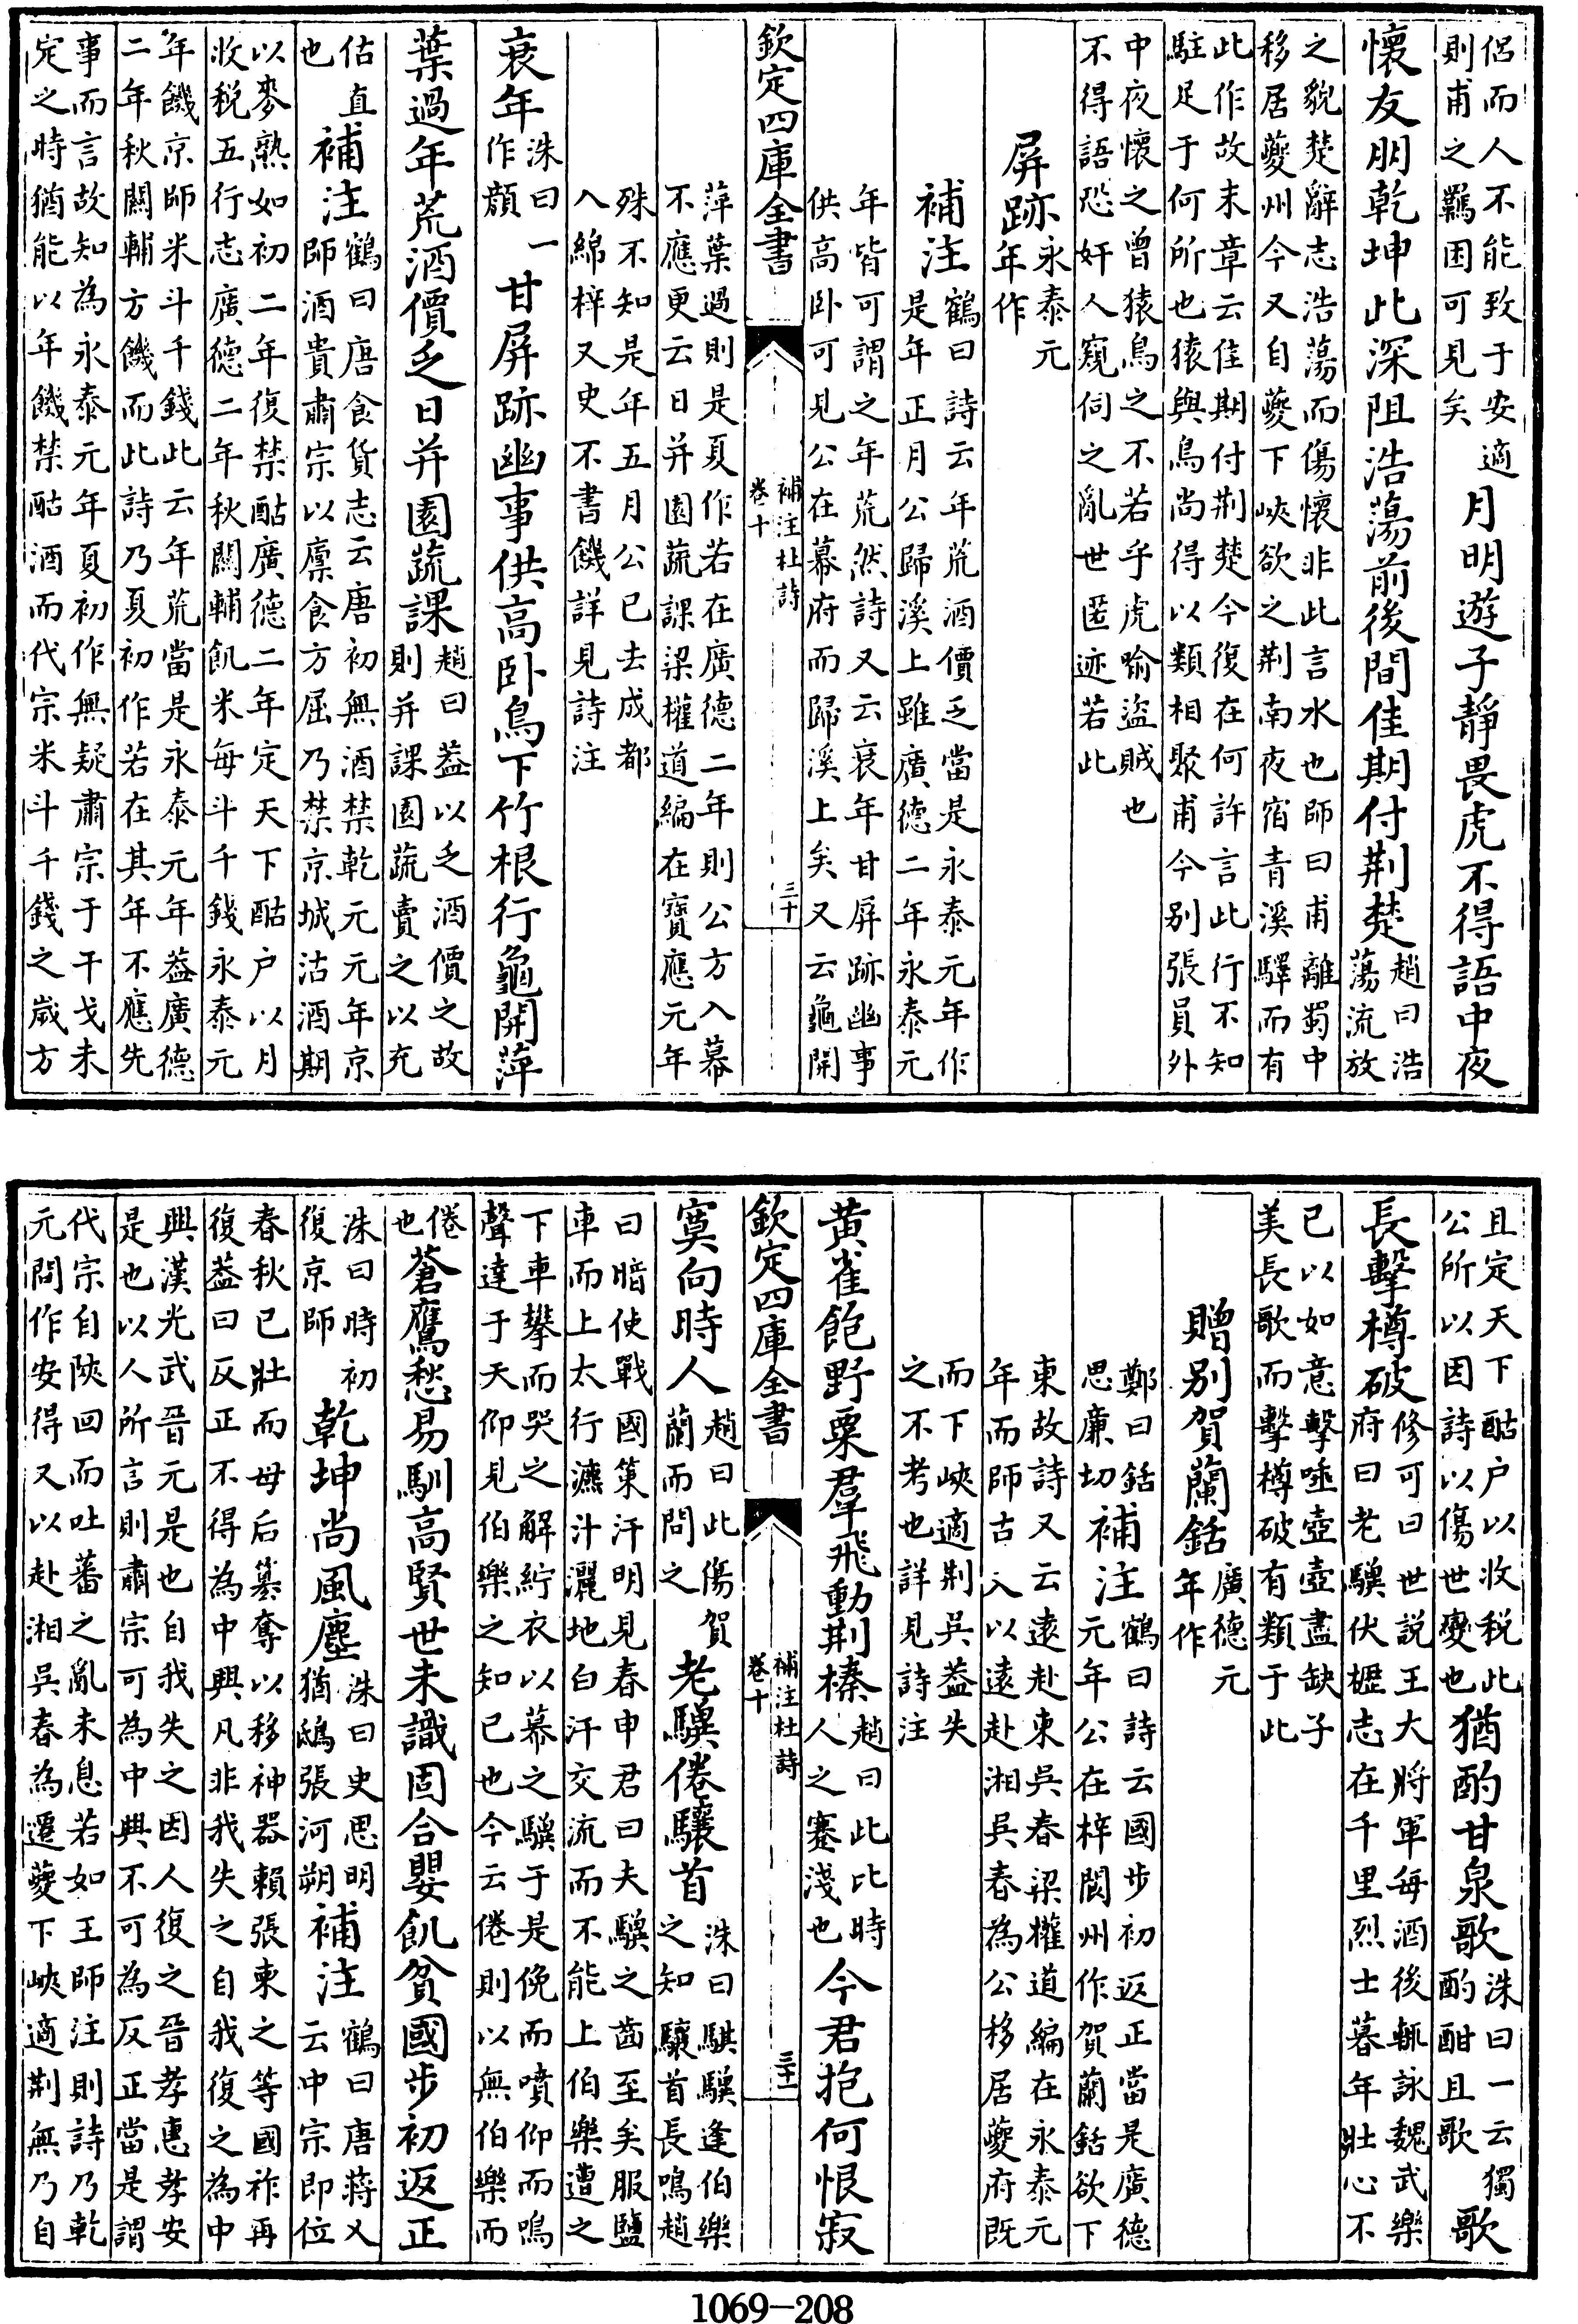 侣而人不能致于安適月明遊子靜畏虎不得語中夜
則甫之羈困可見矣
懷友朋乾坤此深阻浩蕩前後間佳期付荆楚趙曰浩
蕩流放
之貌楚辭志浩蕩而傷懷非此言水也師曰甫離蜀中
移居夔州今又自夔下峽欲之荆南夜宿青溪驛而有
此作故末章云佳期付荆楚今復在何許言此行不知
駐足于何所也猿與鳥尚得以類相聚甫今别張員外
中夜懷之曽猿鳥之不若乎虎喻盜賊也
不得語恐奸人窺伺之亂世匿迹若此
屏跡永泰元
年作
補注鶴曰詩云年荒酒價乏當是永泰元年作
是年正月公歸溪上雖廣德二年永泰元
年皆可謂之年荒然詩又云衰年甘屏跡幽事
供高卧可見公在幕府而歸溪上矣又云龜開
欽定四庫全書
補注杜詩
卷十
三十
萍葉過則是夏作若在廣德二年則公方入幕
不應更云日并園蔬課梁權道編在寶應元年
殊不知是年五月公已去成都
入綿梓又史不書饑詳見詩注
衰年洙曰一
作顔甘屏跡幽事供高卧鳥下竹根行龜開萍
葉過年荒酒價乏日并園蔬課趙曰葢以乏酒價之故
則并課園蔬賣之以充
估直
也補注鶴曰唐食貨志云唐初無酒禁乾元元年京
師酒貴肅宗以廪食方屈乃禁京城沽酒期
以麥熟如初二年復禁酤廣德二年定天下酤户以月
收税五行志廣德二年秋關輔飢米每斗千錢永泰元
年饑京師米斗千錢此云年荒當是永泰元年葢廣德
二年秋關輔方饑而此詩乃夏初作若在其年不應先
事而言故知為永泰元年夏初作無疑肅宗于干戈未
定之時猶能以年饑禁酤酒而代宗米斗千錢之嵗方
且定天下酤户以收税此
公所以因詩以傷世變也猶酌甘泉歌洙曰一云獨
酌酣且歌歌
長擊樽破修可曰世説王大將軍每酒後輒詠魏武樂
府曰老驥伏櫪志在千里烈士暮年壯心不
已以如意擊唾壺壺盡缺子
美長歌而擊樽破有類于此
贈别賀蘭銛廣德元
年作
鄭曰銛
思廉切補注鶴曰詩云國步初返正當是廣德
元年公在梓閬州作賀蘭銛欲下
東故詩又云遠赴東吳春梁權道編在永泰元
年而師古入以遠赴湘吳春為公移居夔府既
而下峽適荆吳葢失
之不考也詳見詩注
黄雀飽野粟羣飛動荆榛趙曰此比時
人之蹇淺也今君抱何恨寂
欽定四庫全書
補注杜詩
卷十
三十一
寞向時人趙曰此傷賀
蘭而問之老驥倦驤首洙曰騏驥逢伯樂
之知驤首長鳴趙
曰暗使戰國䇿汗明見春申君曰夫驥之齒至矣服鹽
車而上太行漉汁灑地白汗交流而不能上伯樂遭之
下車攀而哭之解紵衣以幕之驥于是俛而噴仰而鳴
聲達于天仰見伯樂之知已也今云倦則以無伯樂而
倦
也蒼鷹愁易馴高賢世未識固合嬰飢貧國步初返正
洙曰時初
復京師乾坤尚風塵洙曰史思明
猶鴟張河朔補注鶴曰唐蔣乂
云中宗即位
春秋已壯而母后簒奪以移神器賴張柬之等國祚再
復葢曰反正不得為中興凡非我失之自我復之為中
興漢光武晉元是也自我失之因人復之晉孝惠孝安
是也以人所言則肅宗可為中興不可為反正當是謂
代宗自陜回而吐蕃之亂未息若如王師注則詩乃乾
元間作安得又以赴湘吳春為遷夔下峽適荆無乃自
1069-208